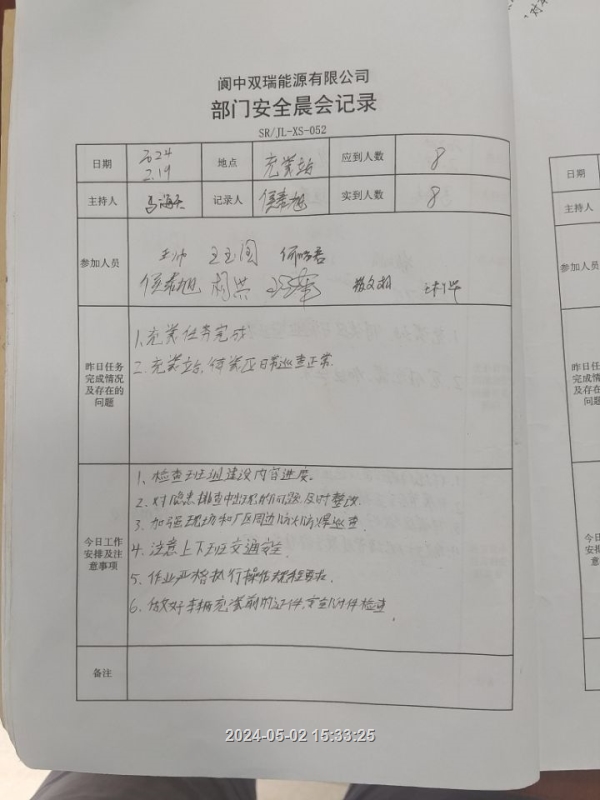 阆中双瑞能源有限公司
部门安全晨会记录
SR/JL-XS-052
日期 2024 2.19 地点 充装站 应到人数 8
主持人 记录人 侯春旭 实到人数 8
参加人员 王帅
侯春旭
昨日任务完成情况及存在的问题
1、充装任务完成
2、充装站、储装区日常巡查正常.
今日工作安排及注意事项
1、检查班组建设内容进度。
2、对隐患排查中出现的问题及时整改.
3、加强现场和厂区周边防火防爆巡查.
4、注意上下班交通安全.
5、作业严格执行操作规程要求.
6、做好车辆充装前的证件、安全附件检查.
备注
日期
主持人
参加人员
2024-05-02 15:33:25